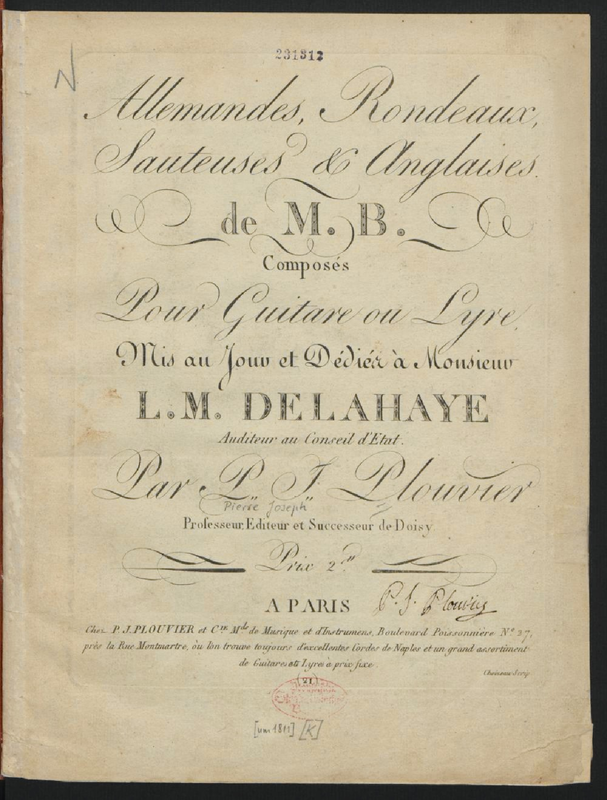 N
231312
Allemandes, Rondeaux,
Sauteuses & Anglaises.
de M. B.
Composés
Pour Guitare ou Lyre.
Mis au Jour et Dédiés à Monsieur
L. M. DELAHAYE
Auditeur au Conseil d'Etat.
Par P. J. Plouvier
Pierre Joseph
Professeur, Editeur et Successeur de Doisy
Prix 2.
A PARIS
P. J. Plouvier
Chez P. J. PLOUVIER et Cie. Mds. de Musique et d'Instrumens, Boulevard Poissonnière No. 27,
près la Rue Montmartre, où l'on trouve toujours d'excellentes Cordes de Naples et un grand assortiment
de Guitares et Lyres à prix fixe.
(VI)
[um 1811] [K]